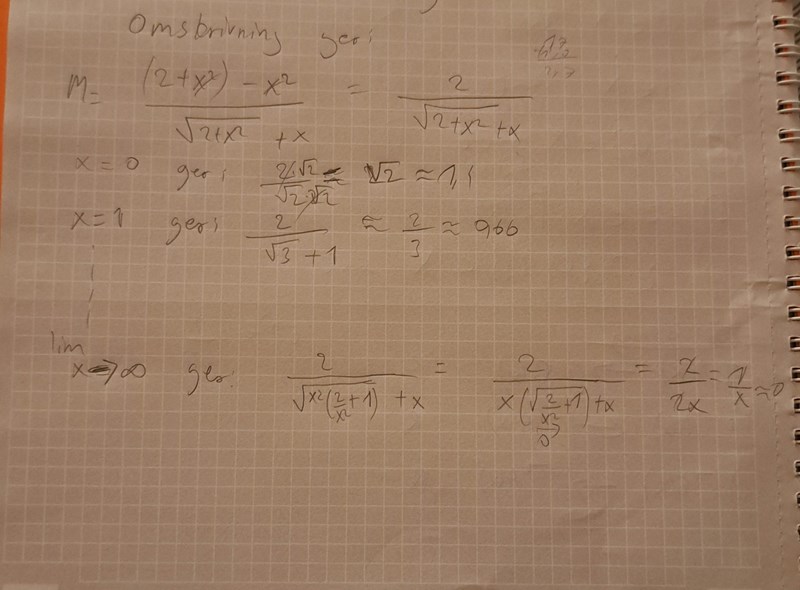 Omskrivning ger:
M = ((2+x²) - x²)/(√(2+x²) + x) = 2/(√(2+x²) + x)
x = 0 ger: √2 ≈ 1,
x = 1 ger: 2/(√3 + 1) ≈ 2/3 ≈ 0,66
lim
x→∞ ger: 2/(√(x²(2/x² + 1)) + x) = 2/(x(√(2/x² + 1)) + x) = 2/2x = 1/x ≈ 0